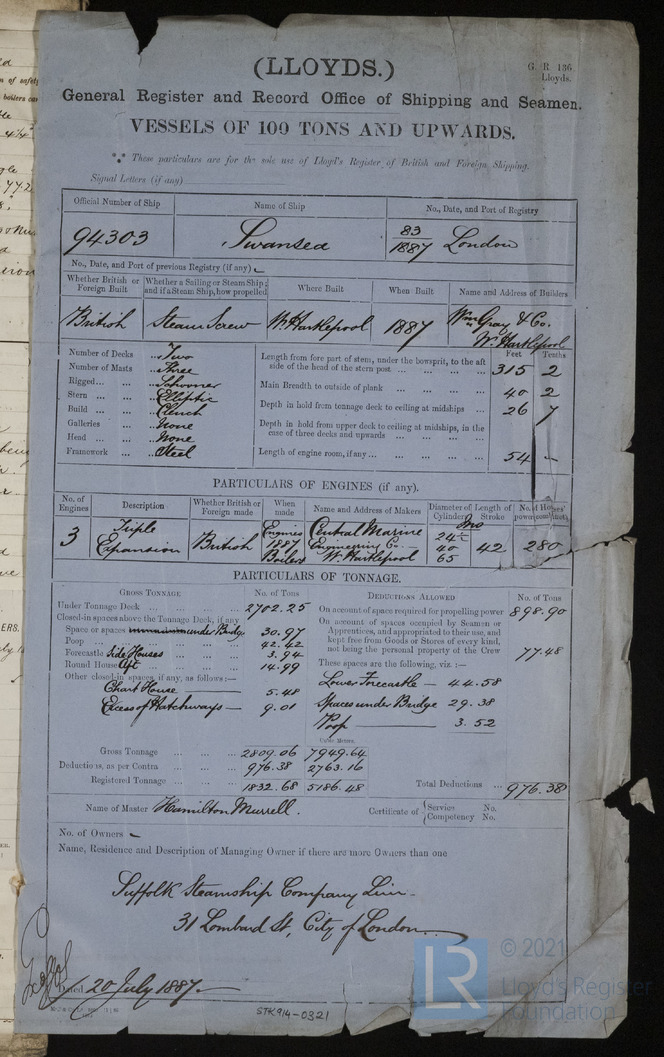 (LLOYDS.)
G. R. 136.
Lloyds.
General Register and Record Office of Shipping and Seamen.
VESSELS OF 100 TONS AND UPWARDS.
These particulars are for the sole use of Lloyd's Register of British and Foreign Shipping.
Signal Letters (if any)
Official Number of Ship Name of Ship No., Date, and Port of Registry
94303 Swansea 83/1887 London
No., Date, and Port of previous Registry (if any)
Whether British or Foreign Built Whether a Sailing or Steam Ship; and if a Steam Ship, how propelled Where Built When Built Name and Address of Builders
British Steam Screw W. Hartlepool 1887 Wm Gray & Co.
W. Hartlepool
Feet Tenths
Number of Decks Two
Number of Masts Three
Rigged Schooner
Stern Elliptic
Build Clench
Galleries None
Head None
Framework Steel
Length from fore part of stem, under the bowsprit, to the aft side of the head of the stern post 315 2
Main Breadth to outside of plank 40 2
Depth in hold from tonnage deck to ceiling at midships 26 7
Depth in hold from upper deck to ceiling at midships, in the case of three decks and upwards
Length of engine room, if any 54 -
PARTICULARS OF ENGINES (if any).
No. of Engines Description Whether British or Foreign made When made Name and Address of Makers Diameter of Cylinders Length of Stroke No. of Horses' power
3 Triple Expansion British Engines 1887 Boilers Central Marine Engineering Co. W. Hartlepool Ins 24 40 65 42 280
PARTICULARS OF TONNAGE.
GROSS TONNAGE No. of Tons
Under Tonnage Deck 2702.25
Closed-in spaces above the Tonnage Deck, if any
Space or spaces under Bridge 30.97
Poop 42.42
Forecastle Side Houses 3.94
Round House Aft 14.99
Other closed-in spaces, if any, as follows:
Chart House 5.48
Excess of Hatchways 9.01
Gross Tonnage 2809.06 7949.64
Deductions, as per Contra 976.38 2763.16
Registered Tonnage 1832.68 5186.48
DEDUCTIONS ALLOWED No. of Tons
On account of space required for propelling power 898.90
On account of spaces occupied by Seamen or Apprentices, and appropriated to their use, and kept free from Goods or Stores of every kind, not being the personal property of the Crew 77.48
These spaces are the following, viz.:
Lower Forecastle 44.58
Spaces under Bridge 29.38
Poop 3.52
Total Deductions 976.38
Name of Master Hamilton Murrell.
Certificate of Service No.
Competency No.
No. of Owners -
Name, Residence and Description of Managing Owner if there are more Owners than one
Suffolk Steamship Company Lim
31 Lombard St, City of London
Dated 20 July 1887
STK914-0321
LR
© 2021
Lloyd's Register
Foundation